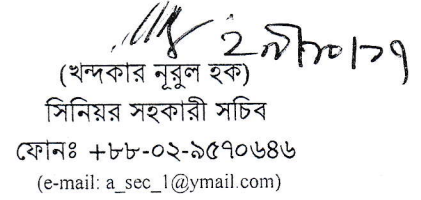 (খন্দকার নূরুল হক)
সিনিয়র সহকারী সচিব
ফোনঃ +৮৮-০২-৯৫৭০৬৪৬
(e-mail: a_sec_1@ymail.com)